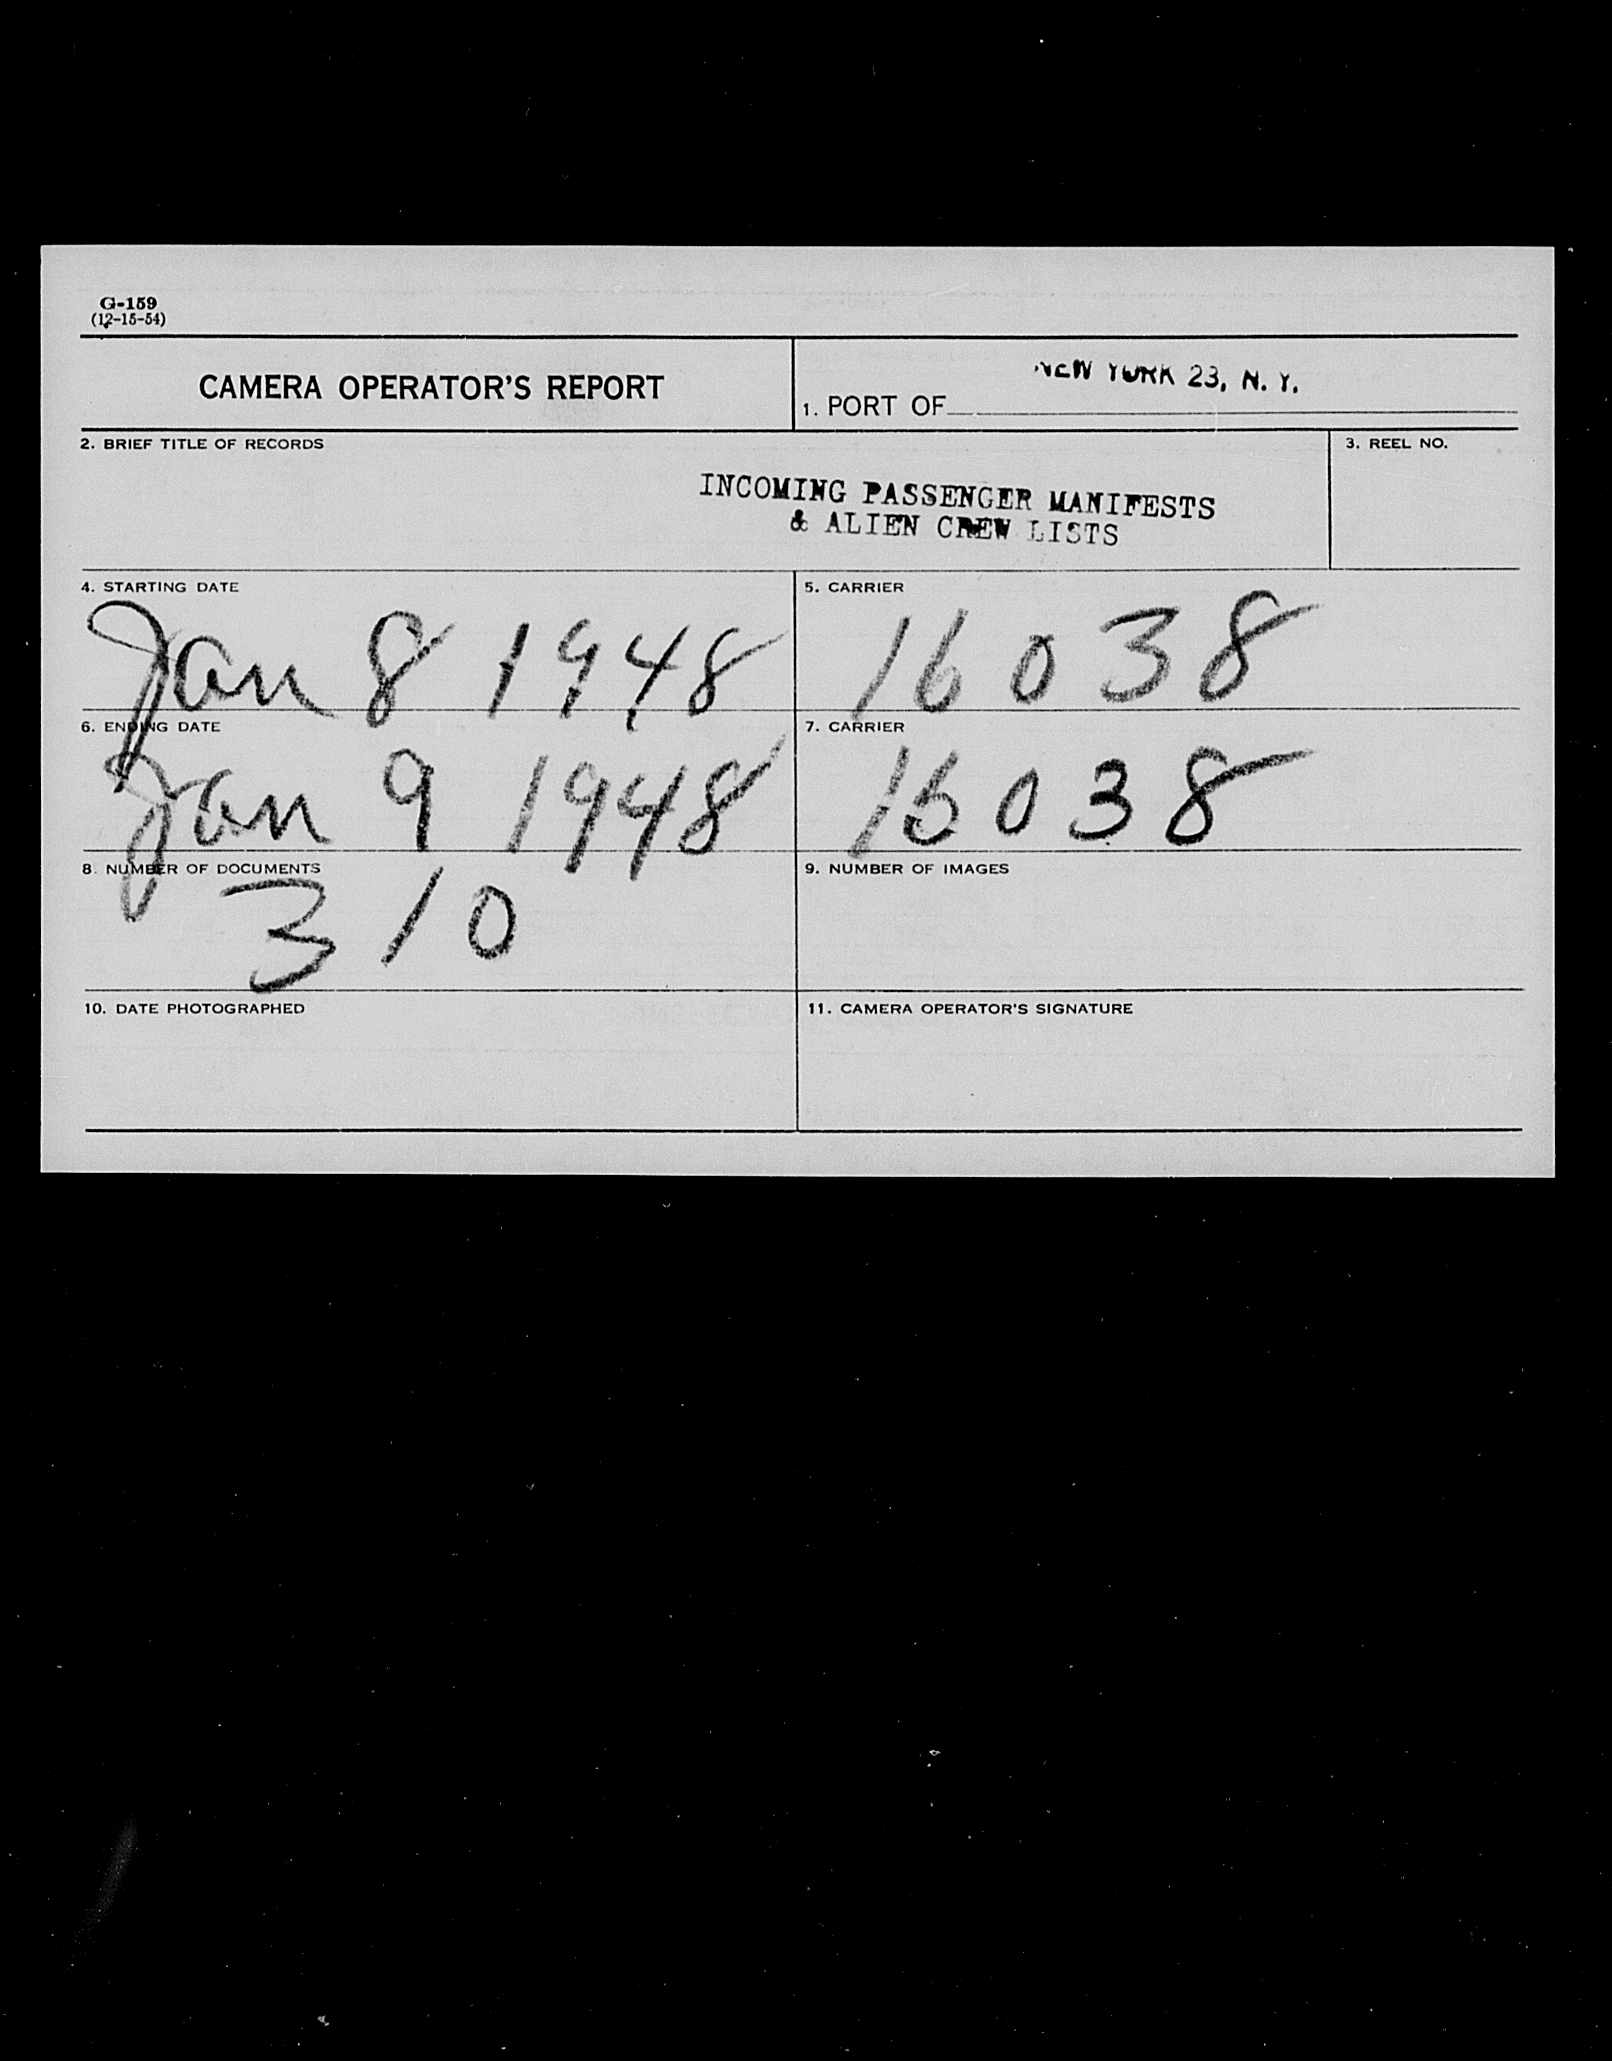 G-159
(12-15-54)
CAMERA OPERATOR'S REPORT
1. PORT OF NEW YORK 23, N. Y.
2. BRIEF TITLE OF RECORDS
INCOMING PASSENGER MANIFESTS
& ALIEN CREW LISTS
3. REEL NO.
4. STARTING DATE
Jan 8 1948
5. CARRIER
16038
6. ENDING DATE
Jan 9 1948
7. CARRIER
16038
8. NUMBER OF DOCUMENTS
310
9. NUMBER OF IMAGES
10. DATE PHOTOGRAPHED
11. CAMERA OPERATOR'S SIGNATURE